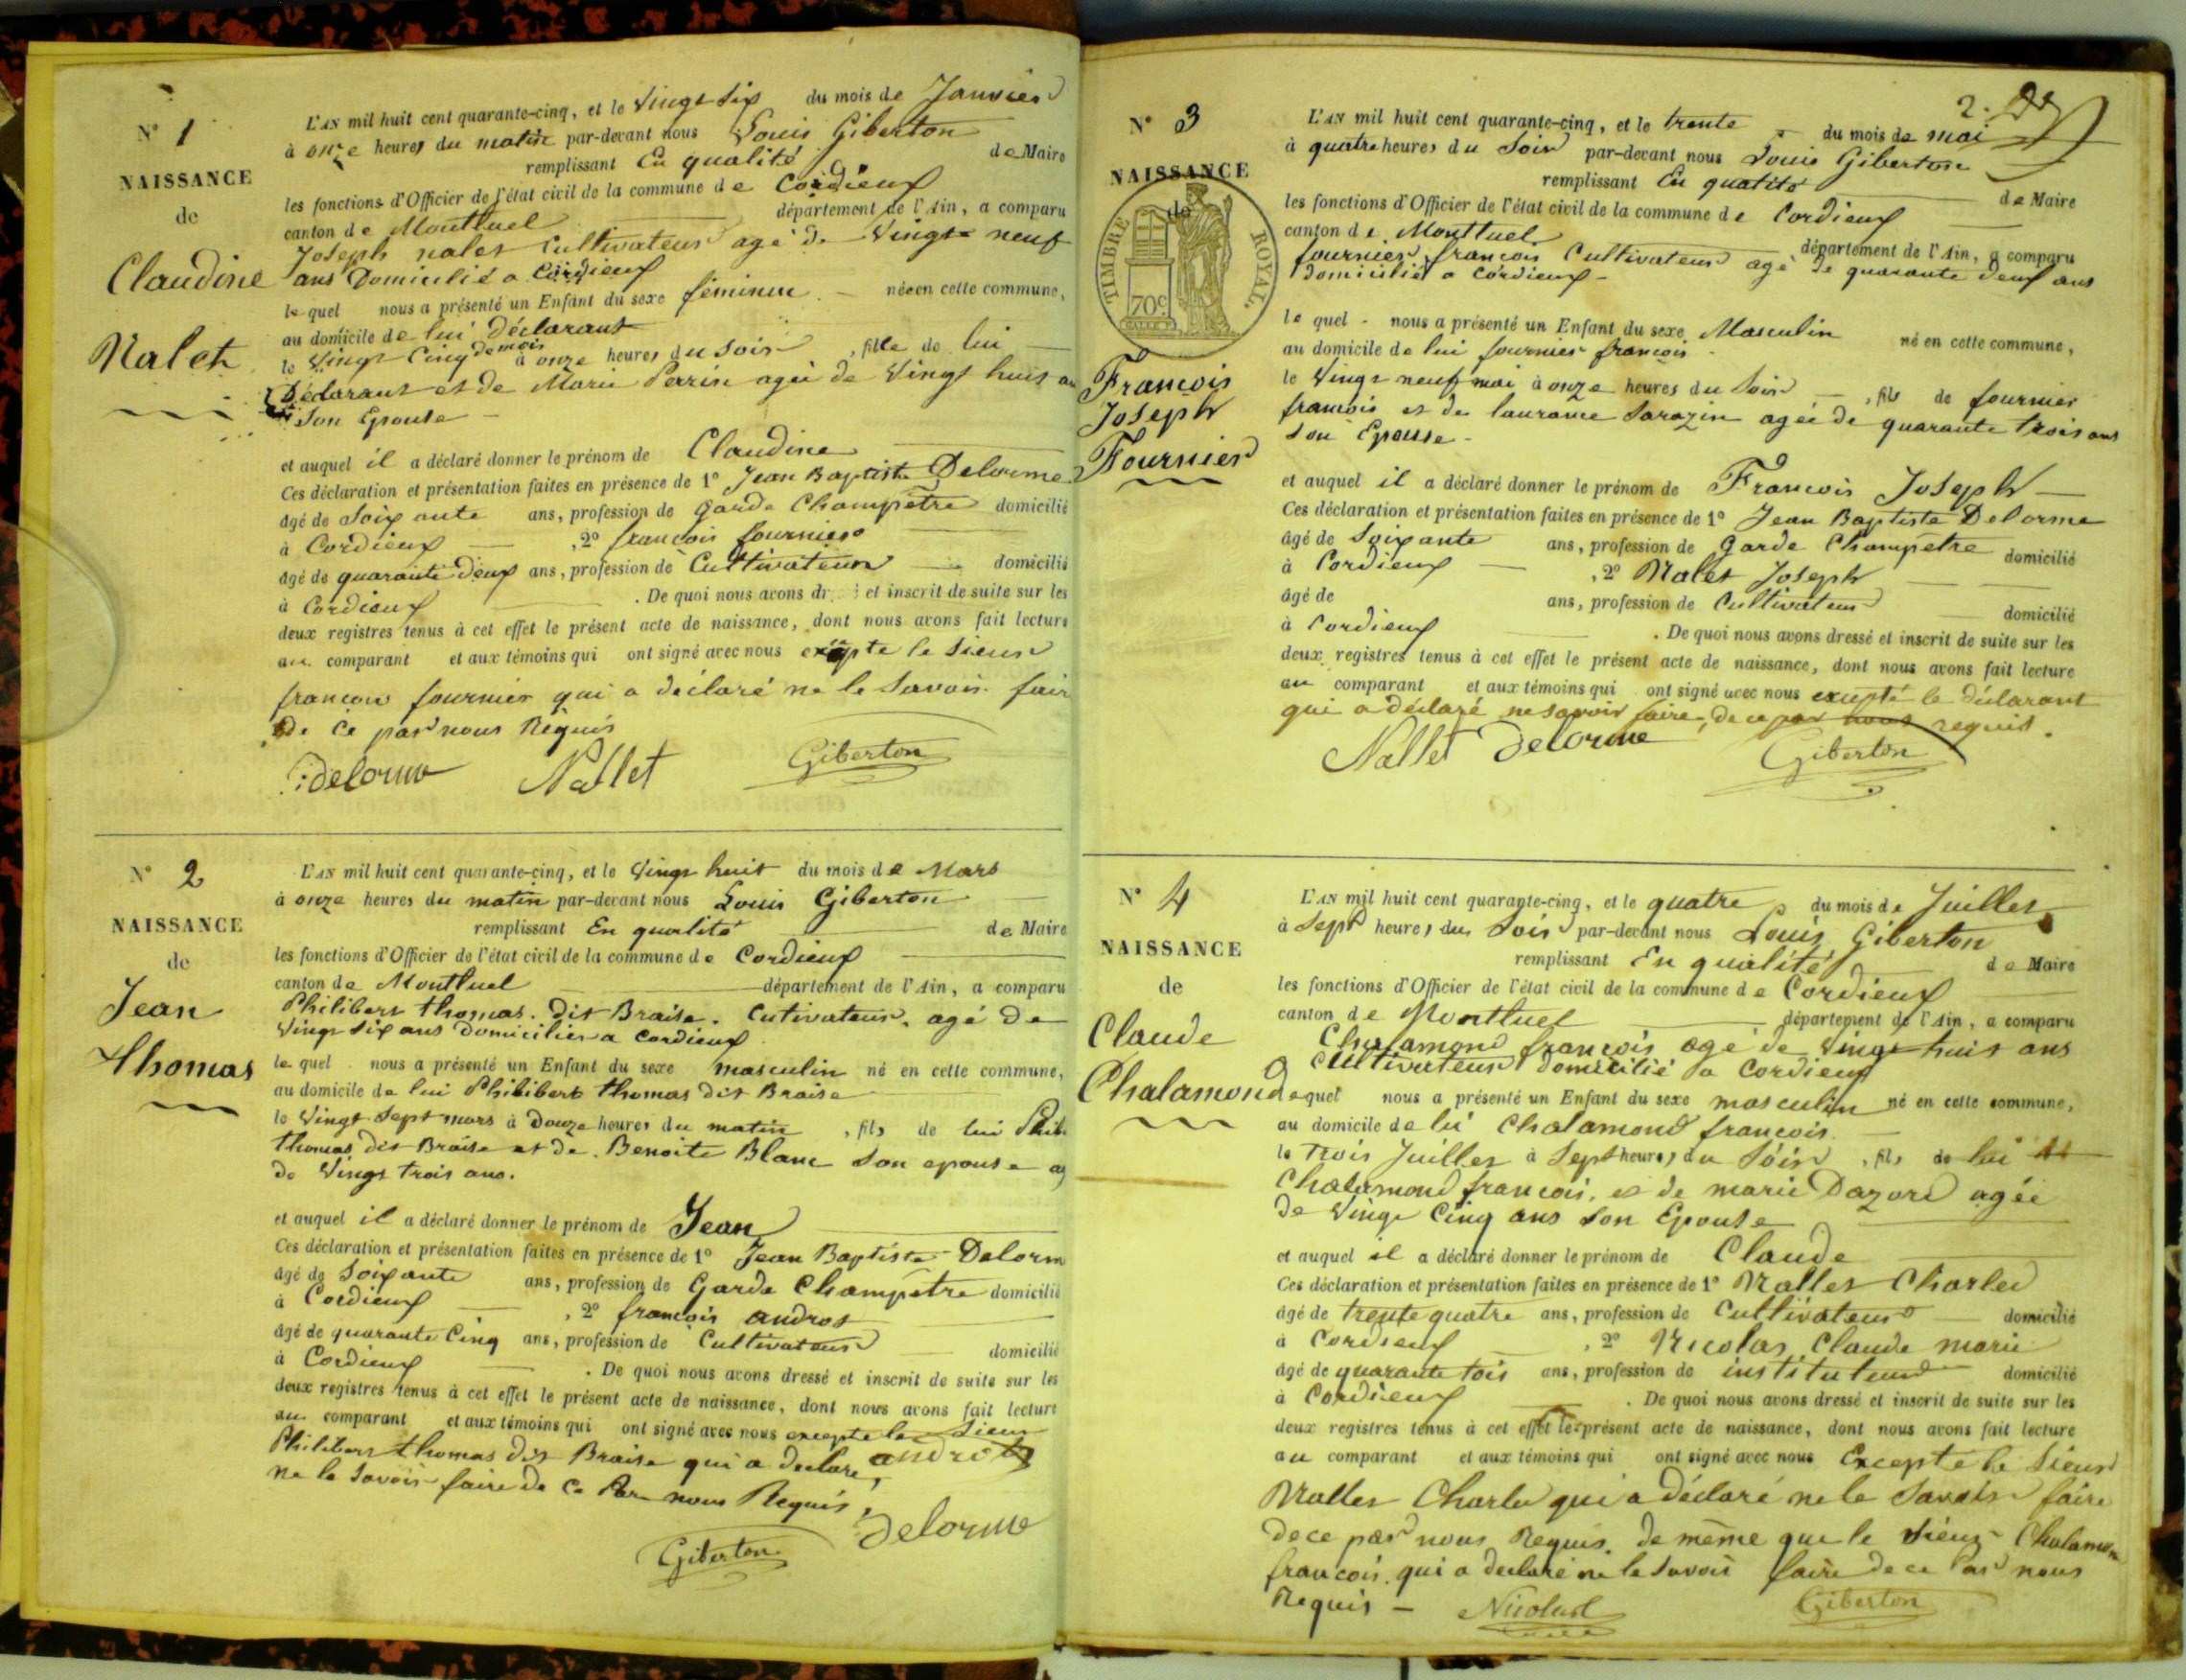 N° 1
NAISSANCE
de
Claudine
Nalet
L'AN mil huit cent quarante-cinq, et le vingt six du mois de Janvier
à onze heures du matin par-devant nous Louis Giberton
remplissant En qualité de Maire
les fonctions d'Officier de l'état civil de la commune de Cordieux
canton de Montluel département de l'Ain, a comparu
Joseph nalet Cultivateur agé de vingt neuf
ans Domicilié a Cordieux
le quel nous a présenté un Enfant du sexe féminin née en cette commune,
au domicile de lui Déclarant
le vingt Cinq de mois à onze heures du soir, fille de lui
Déclarant et de Marie Perrin agée de vingt huit an
Son Epouse
et auquel il a déclaré donner le prénom de Claudine
Ces déclaration et présentation faites en présence de 1° Jean Baptiste Delorme
âgé de Soixante ans, profession de garde Champêtre domicilié
à Cordieux, 2° francois fournier
âgé de quarante deux ans, profession de Cultivateur domicilié
à Cordieux. De quoi nous avons dr et inscrit de suite sur les
deux registres tenus à cet effet le présent acte de naissance, dont nous avons fait lecture
au comparant et aux témoins qui ont signé avec nous exepte le Sieur
francois fournier qui a déclaré ne le Savoir fair
de Ce par nous Requis
delorme Nallet Giberton
N° 2
NAISSANCE
de
Jean
Thomas
L'AN mil huit cent quarante-cinq, et le vingt huit du mois de Mars
à onze heures du matin par-devant nous Louis Giberton
remplissant En qualité de Maire
les fonctions d'Officier de l'état civil de la commune de Cordieux
canton de Montluel département de l'Ain, a comparu
Philibert thomas. dit Braise. Cutivateur. agé de
vingt six ans Domicilier a Cordieux
le quel nous a présenté un Enfant du sexe masculin né en cette commune,
au domicile de lui Philibert thomas dit Braise
le vingt Sept mars à Douze heures du matin, fils de lui Phili
thomas dit Braise et de Benoite Blanc Son epouse ag
de vingt trois ans.
et auquel il a déclaré donner le prénom de Jean
Ces déclaration et présentation faites en présence de 1° Jean Baptiste Delorm
âgé de Soixante ans, profession de Garde Champêtre domicilié
à Cordieux, 2° francois androt
âgé de quarante Cinq ans, profession de Cultivateur domicilié
à Cordieux. De quoi nous avons dressé et inscrit de suite sur les
deux registres tenus à cet effet le présent acte de naissance, dont nous avons fait lecture
au comparant et aux témoins qui ont signé avec nous excepte le Sieur
Philibert thomas dit Braise qui a declaré androt
ne le Savoir faire de Ce Par nous Requis,
Giberton delorme
2.
N° 3
NAISSANCE
de
TIMBRE ROYAL.
70c
Francois
Joseph
Fournier
L'AN mil huit cent quarante-cinq, et le trente du mois de mai
à quatre heures du Soir par-devant nous Louis Giberton
remplissant En qualité de Maire
les fonctions d'Officier de l'état civil de la commune de Cordieux
canton de Montluel département de l'Ain, a comparu
fournier francois Cultivateur agé de quarante deux ans
Domicilié a Cordieux
le quel nous a présenté un Enfant du sexe Masculin né en cette commune,
au domicile de lui fournier francois
le vingt neuf mai à onze heures du Soir, fils de fournier
francois et de laurance Sarazin agée de quarante trois ans
Son Epouse
et auquel il a déclaré donner le prénom de Francois Joseph
Ces déclaration et présentation faites en présence de 1° Jean Baptiste Delorme
âgé de Soixante ans, profession de Garde Champêtre domicilié
à Cordieux, 2° Nalet Joseph
âgé de ans, profession de Cultivateur domicilié
à Cordieux. De quoi nous avons dressé et inscrit de suite sur les
deux registres tenus à cet effet le présent acte de naissance, dont nous avons fait lecture
au comparant et aux témoins qui ont signé avec nous excepté le déclarant
qui a déclaré ne savoir faire, de ce par nous requis.
Nallet Delorme Giberton
N° 4
NAISSANCE
de
Claude
Chalamond
L'AN mil huit cent quarante-cinq, et le quatre du mois de Juillet
à Sept heures du Soir par-devant nous Louis Giberton
remplissant En qualité de Maire
les fonctions d'Officier de l'état civil de la commune de Cordieux
canton de Montluel département de l'Ain, a comparu
Chalamond francois agé de vingt huit ans
Cultivateur Domicilié a Cordieux
lequel nous a présenté un Enfant du sexe masculin né en cette commune,
au domicile de lui Chalamond francois.
le trois Juillet à Sept heures du Soir, fils de lui
Chalamond francois, et de marie Dazord agée
de vingt Cinq ans Son Epouse
et auquel il a déclaré donner le prénom de Claude
Ces déclaration et présentation faites en présence de 1° Nallet Charles
âgé de trente quatre ans, profession de Cultivateur domicilié
à Cordieux, 2° Nicolas Claude marie
âgé de quarante tois ans, profession de instituteur domicilié
à Cordieux. De quoi nous avons dressé et inscrit de suite sur les
deux registres tenus à cet effet le présent acte de naissance, dont nous avons fait lecture
au comparant et aux témoins qui ont signé avec nous Excepte le Sieur
Nallet Charles qui a déclaré ne le Savoir faire
de ce par nous Requis. de même que le Sieur Chalamon
francois. qui a declaré ne le Savoir faire de ce Par nous
Requis Giberton